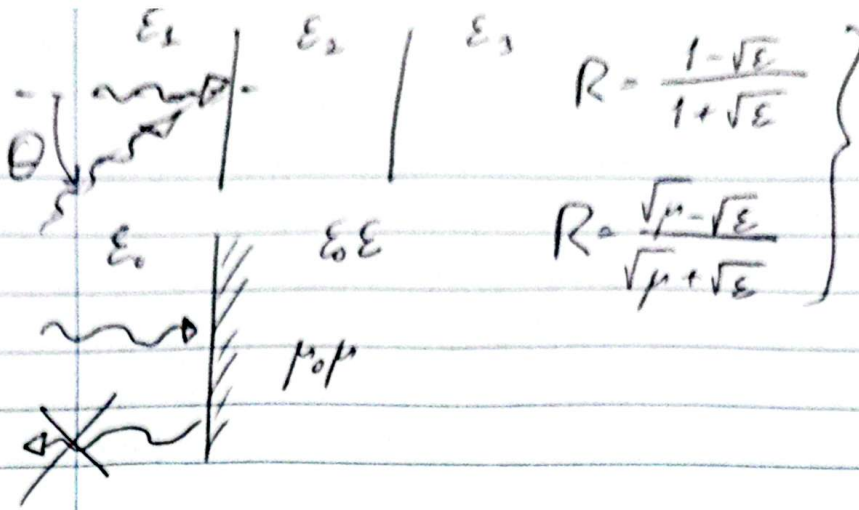 ε₁ ε₂ ε₃
R = \frac{1-√ε}{1+√ε}
θ
ε₀ ε₀ε
R = \frac{√μ-√ε}{√μ+√ε}
μ₀μ